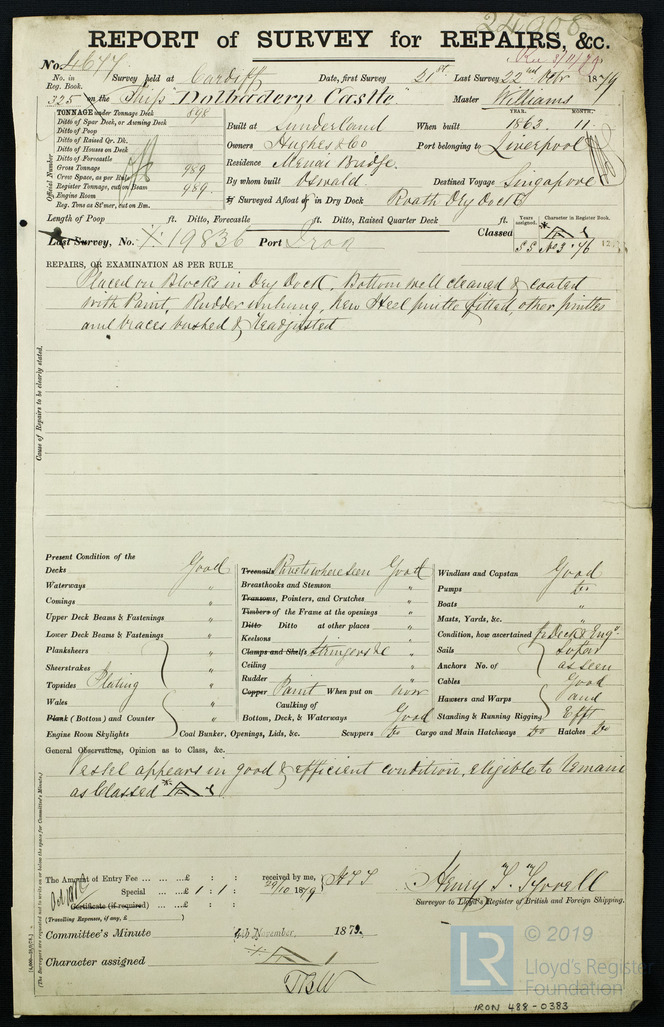 24908
REPORT of SURVEY for REPAIRS, &c.
No. 4677
Rec 3/11/79
No. in Reg. Book. Survey held at Cardiff Date, first Survey 21st Last Survey 22nd Octr 1879
325 on the Ship "Dolbadern Castle" Master Williams
TONNAGE under Tonnage Deck 898
Ditto of Spar Deck, or Awning Deck
Ditto of Poop
Ditto of Raised Qr. Dk.
Ditto of Houses on Deck
Ditto of Forecastle
Gross Tonnage 989
Crew Space, as per Rule
Register Tonnage, cut on Beam 989
Engine Room
Reg. Tons as St'mer, cut on Bm.
Official Number
YEAR. MONTH.
Built at Sunderland When built 1863. 11
Owners Hughes & Co Port belonging to Liverpool
Residence Menai Bridge.
By whom built Oswald. Destined Voyage Singapore
If Surveyed Afloat or in Dry Dock Roath Dry Dock
Length of Poop ft. Ditto, Forecastle ft. Ditto, Raised Quarter Deck ft.
Years assigned. Character in Register Book.
Last Survey, No. 19836 Port Iron Classed A 1
S.S. No 3 · 76
REPAIRS, OR EXAMINATION AS PER RULE
Placed on Blocks in Dry Dock. Bottom well cleaned & coated
with Paint, Rudder unhung, New Heel pintle fitted, other pintles
and braces bushed & readjusted
Cause of Repairs to be clearly stated.
Present Condition of the
Decks Good
Waterways "
Comings "
Upper Deck Beams & Fastenings "
Lower Deck Beams & Fastenings "
Planksheers
Sheerstrakes "
Topsides Plating "
Wales "
Plank (Bottom) and Counter "
Engine Room Skylights
Treenails Rivets where seen Good
Breasthooks and Stemson "
Transoms, Pointers, and Crutches "
Timbers of the Frame at the openings "
Ditto Ditto at other places "
Keelsons "
Clamps and Shelfs Stringers &c "
Ceiling "
Rudder "
Copper Paint When put on now
Caulking of
Bottom, Deck, & Waterways Good
Coal Bunker, Openings, Lids, &c. Scuppers Do Cargo and Main Hatchways Do Hatches Do
Windlass and Capstan Good
Pumps Do
Boats "
Masts, Yards, &c. "
Condition, how ascertained fr Deck & Engy.
Sails so far
Anchors No. of as seen
Cables Good
Hawsers and Warps and
Standing & Running Rigging Efft
General Observations, Opinion as to Class, &c.
Vessel appears in good & efficient condition, eligible to remain
as Classed A 1
(The Surveyors are requested not to write on or below the space for Committee's Minute.)
The Amount of Entry Fee ... ... ...£ : : received by me,
Special ... ...£ 1 : 1 : 29/10 1879 HTT
Certificate (if required) ...£ : :
(Travelling Expenses, if any, £ )
Henry T. Tyrrell
Surveyor to Lloyd's Register of British and Foreign Shipping.
Committee's Minute 4th November, 1879.
Character assigned A 1
TBW
LR © 2019
Lloyd's Register
Foundation
IRON 488-0383